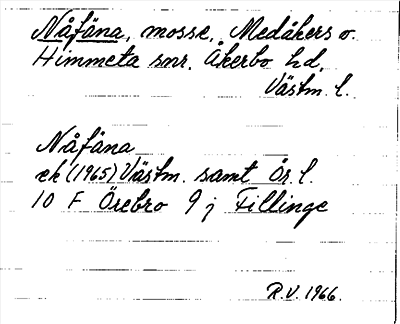 Nåfäna, mosse, Medåkers o.
Himmeta snr, Åkerbo hd,
Västm. l.
Nåfäna
ek (1965) Västm. samt Ör. l.
10 F Örebro 9 j Fillinge
R.V. 1966.